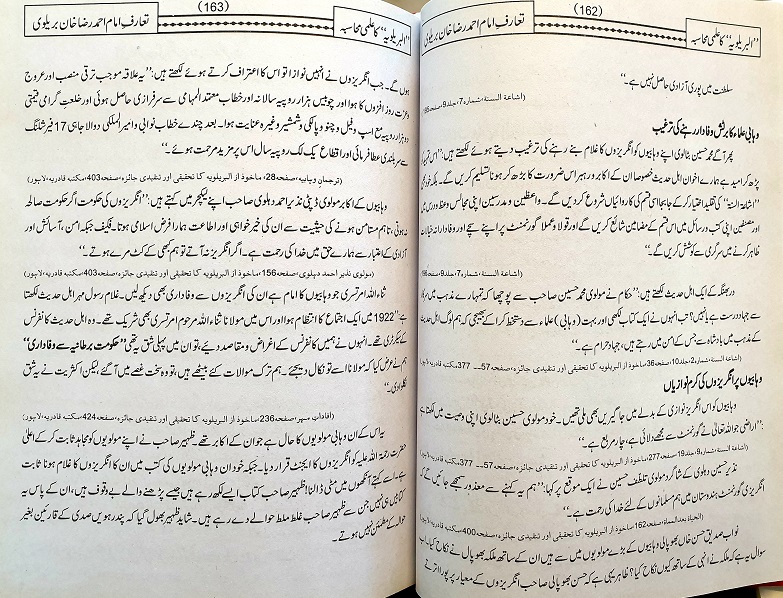 "البریلویہ" کا علمی محاسبہ
(162)
تعارف امام احمد رضا خان بریلوی
سلطنت میں پوری آزادی حاصل نہیں ہے۔"
(اشاعۃ السنۃ،شمارہ7،جلد9،صفحہ
وہابی علماء کا برٹش وفادار رہنے کی ترغیب
پھر آگے محمد حسین بٹالوی اپنے وہابیوں کو انگریزوں کا غلام بنے رہنے کی ترغیب دیتے ہوئے لکھتے ہیں:"اس
پڑھ کر امید ہے ہمارے اخوان اہل حدیث خصوصا ان کے اکابر و رہبر اس ضرورت کا بڑھ کر ہونا تسلیم کریں گے۔ بلکہ
"اشاعۃ السنۃ" کی تقلید اختیار کرکے جابجا اسی قسم کی کاروائیاں شروع کردیں گے۔ واعظین و مدرسین اپنی مجالس وعظ و درس میں
اور مصنفین اپنی کتب و رسائل میں اس قسم کے مضامین شائع کریں گے اور قولا و عملا گورنمنٹ پر اپنے سچے اور وفادارانہ خیالات
ظاہر کرنے میں سرگرمی سے کوشش کریں گے۔"
(اشاعۃ السنۃ،شمارہ7،جلد9،صفحہ
دربھنگہ کے ایک اہل حدیث لکھتے ہیں:"حکام نے مولوی محمد حسین صاحب سے پوچھا کہ تمہارے مذہب میں سرکار
سے جہاد درست ہے یا نہیں؟ تب انہوں نے ایک کتاب لکھی اور بہت (وہابی) علماء سے دستخط کرا کے بھیجی کہ ہم لوگ اہل حدیث
کے مذہب میں بادشاہ سے جس کے امن میں رہتے ہیں، جہاد حرام ہے۔"
(اشاعۃ السنۃ،شمارہ2،جلد10،صفحہ36،ماخوذ از البریلویہ کا تحقیقی اور تنقیدی جائزہ،صفحہ57۔۔377،مکتبہ قادریہ،لاہور)
وہابیوں پر انگریزوں کی کرم نوازیاں
وہابیوں کو اس انگریز نوازی کے بدلے میں جاگیریں بھی ملی تھیں۔ خود مولوی حسین بٹالوی اپنی وصیت میں لکھتا ہے
:"اراضی جو اللہ تعالیٰ نے گورنمنٹ سے مجھے دلائی ہے، چار مربع ہے۔"
(اشاعۃ السنۃ،شمارہ9،جلد19،صفحہ277،ماخوذ از البریلویہ کا تحقیقی اور تنقیدی جائزہ،صفحہ57۔۔377،مکتبہ قادریہ،لاہور)
نذیر حسین دہلوی کے شاگرد مولوی تلطف حسین نے ایک موقع پر کہا:"ہم یہ کہنے سے معذور سمجھے جائیں گے کہ
انگریزی گورنمنٹ ہندوستان میں ہم مسلمانوں کے لئے خدا کی رحمت ہے۔"
(الحیاۃ بعد المماۃ،صفحہ162،ماخوذ از البریلویہ کا تحقیقی اور تنقیدی جائزہ،صفحہ400،مکتبہ قادریہ،لاہور)
نواب صدیق حسن خاں بھوپالی وہابیوں کے بڑے مولویوں میں سے ہیں ان کے ساتھ ملکہ بھوپال نے نکاح کیا، اب
سوال یہ ہے کہ ملکہ نے انہی کے ساتھ کیوں نکاح کیا؟ ظاہر یہی ہے کہ حسن بھوپالی صاحب انگریزوں کے معیار پر پورا اترتے
"البریلویہ" کا علمی محاسبہ
(163)
تعارف امام احمد رضا خان بریلوی
ہوں گے۔ جب انگریزوں نے انہیں نوازا تو اس کا اعتراف کرتے ہوئے لکھتے ہیں:"یہ علاقہ موجب ترقی منصب اور عروج
وعزت روز افزوں کا ہوا اور چوبیس ہزار روپیہ سالانہ اور خطاب معتمد المہامی سے سرفرازی حاصل ہوئی اور خلعت گرامی قیمتی
دو ہزار روپیہ مع اسپ و فیل و چنور و پالکی و شمشیر وغیرہ عنایت ہوا۔ بعد چندے خطاب نوابی و امیر الملکی والا جاہی 17 فیر شلنگ
سے سربلندی عطا فرمائی اور اقطاع یک لک روپیہ سال اس پر مزید مرحمت ہوئے۔"
(ترجمان وہابیہ،صفحہ28،ماخوذ از البریلویہ کا تحقیقی اور تنقیدی جائزہ،صفحہ403،مکتبہ قادریہ،لاہور)
وہابیوں کے اکابر مولوی ڈپٹی نذیر احمد دہلوی صاحب اپنے لیکچر میں کہتے ہیں:"انگریزوں کی حکومت اگر حکومت صالحہ
نہ ہوتی، تاہم مستامن ہونے کی حیثیت سے ان کی خیر خواہی اور اطاعت ہمارا فرض اسلامی ہوتا۔ فکیف جبکہ امن، آسائش اور
آزادی کے اعتبار سے ہمارے حق میں خدا کی رحمت ہے۔ اگر انگریز نہ آتے تو ہم کبھی کے کٹ مرے ہوتے۔"
(مولوی نذیر احمد دہلوی،صفحہ156،ماخوذ از البریلویہ کا تحقیقی اور تنقیدی جائزہ،صفحہ403،مکتبہ قادریہ،لاہور)
ثناء اللہ امرتسری جو وہابیوں کا امام ہے ان کی انگریزوں سے وفاداری بھی دیکھ لیں۔ غلام رسول مہر اہل حدیث لکھتا
ہے:"1922 میں ایک اجتماع کا انتظام ہوا اور اس میں مولانا ثناء اللہ مرحوم امرتسری بھی شریک تھے۔ وہ اہل حدیث کانفرنس
کے سیکرٹری تھے۔ انہوں نے ہمیں کانفرنس کے اغراض و مقاصد دیئے، تو ان میں پہلی شق یہ تھی "حکومت برطانیہ سے وفاداری"
ہم نے عرض کیا کہ مولانا اسے تو نکال دیجئے۔ ہم ترک موالات کئے بیٹھے ہیں، تو وہ سخت غصے میں آگئے، لیکن اکثریت نے یہ شق
نکلوا دی۔"
(افادات مہر،صفحہ236،ماخوذ از البریلویہ کا تحقیقی اور تنقیدی جائزہ،صفحہ424،مکتبہ قادریہ،لاہور)
یہ اس کے ان وہابی مولویوں کا حال ہے جو ان کے اکابر تھے۔ ظہیر صاحب نے اپنے مولویوں کو مجاہد ثابت کرکے اعلیٰ
حضرت رحمۃ اللہ علیہ کو انگریزوں کا ایجنٹ قرار دیا۔ جبکہ خود ان وہابی مولویوں کی کتب میں ان کا انگریزوں کا غلام ہونا ثابت
ہے۔ اسے کہتے آنکھوں میں مٹی ڈالنا! ظہیر صاحب کتاب ایسے لکھ رہے ہیں جیسے پڑھنے والے بے وقوف ہیں، ان کے پاس یہ
کتابیں ہی نہیں جن سے ظہیر صاحب غلط ملط حوالے دے رہے ہیں۔ شاید ظہیر بھول گیا کہ پندرہویں صدی کے قارئین بغیر
حوالہ کے مطمئن نہیں ہوتے۔